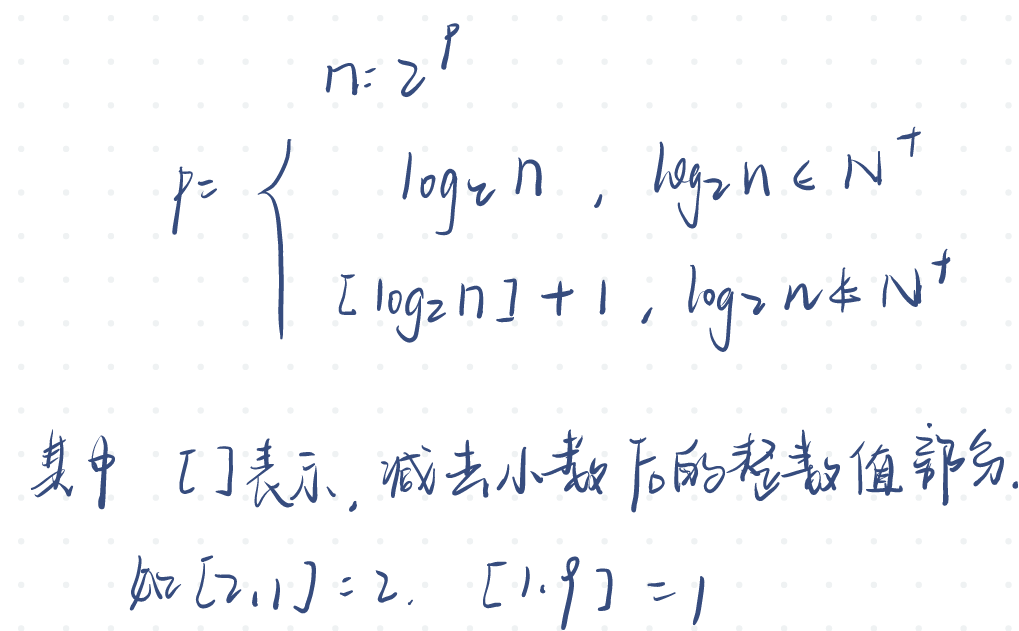 n=2^p
p= { log₂n , log₂n ∈ N⁺
[log₂n]+1 , log₂n ∉ N⁺
其中 [ ]表示, 减去小数后的整数值部分.
如[2.1]=2. [1.9]=1